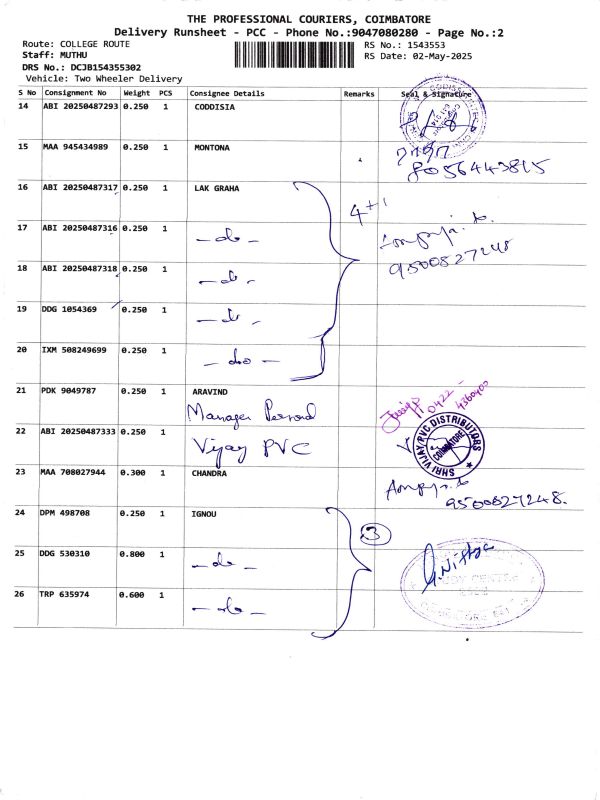 THE PROFESSIONAL COURIERS, COIMBATORE
Delivery Runsheet - PCC - Phone No.:9047080280 - Page No.:2
Route: COLLEGE ROUTE
RS No.: 1543553
Staff: MUTHU
RS Date: 02-May-2025
DRS No.: DCJB154355302
Vehicle: Two Wheeler Delivery
S No Consignment No Weight PCS Consignee Details Remarks Seal & Signature
14 ABI 20250487293 0.250 1 CODDISIA
15 MAA 945434989 0.250 1 MONTONA
8056443815
16 ABI 20250487317 0.250 1 LAK GRAHA
4+1
17 ABI 20250487316 0.250 1 -do-
9500827248
18 ABI 20250487318 0.250 1 -do-
19 DDG 1054369 0.250 1 -do-
20 IXM 508249699 0.250 1 -do-
21 PDK 9049787 0.250 1 ARAVIND
Manager
0422-4360400
22 ABI 20250487333 0.250 1 Vijay PVC
SHRI VIJAY PVC DISTRIBUTORS
COIMBATORE
23 MAA 708027944 0.300 1 CHANDRA
9500827248.
24 DPM 498708 0.250 1 IGNOU
3
25 DDG 530310 0.800 1 -do-
26 TRP 635974 0.600 1 -do-